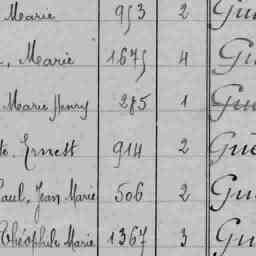 Marie 953 2 Gu
, Marie 1675 4 Gu
Marie Henry 285 1 Gu
te. Ernest 914 2 Guè
Paul, Jean Marie 506 2 Gu
Théophile Marie 1367 3 Gu